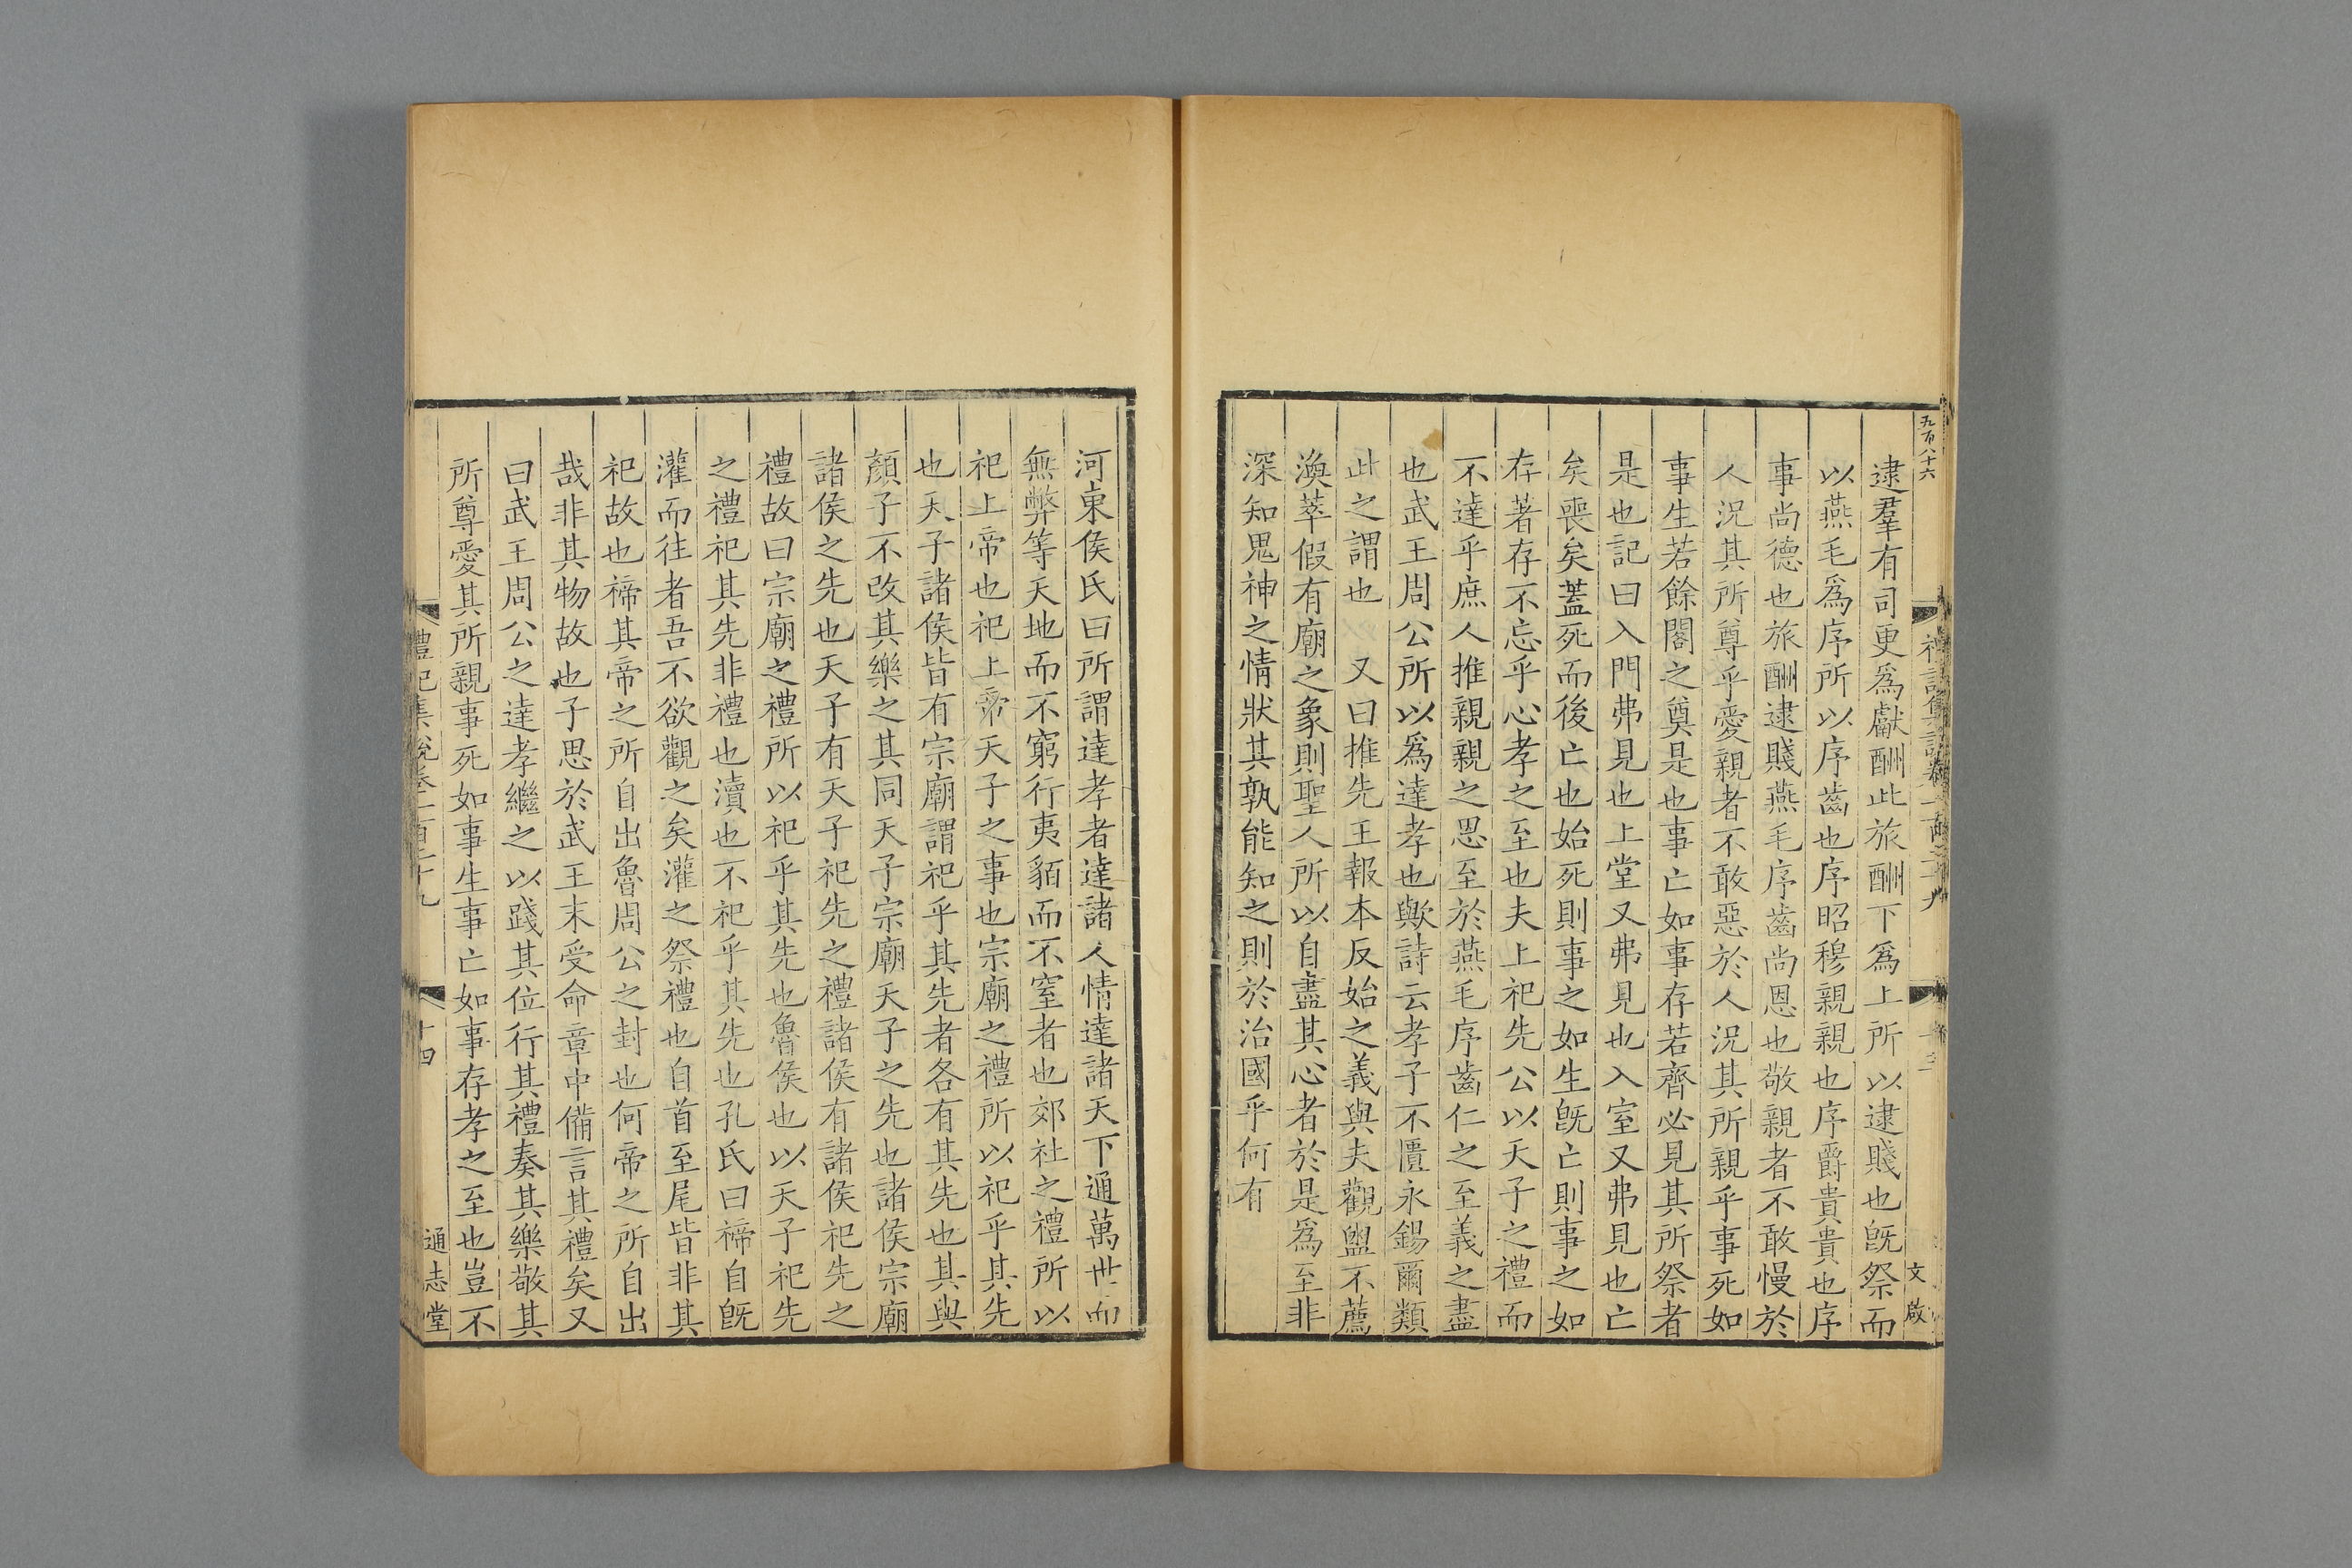 五百八十六
逮羣有司更爲獻酬此旅酬下爲上所以逮賤也旣祭而
以燕毛爲序所以序齒也序昭穆親親也序爵貴貴也序
事尚德也旅酬逮賤燕毛序齒尚恩也敬親者不敢慢於
人況其所尊乎愛親者不敢惡於人況其所親乎事死如
事生若餘閣之奠是也事亡如事存若齊必見其所祭者
是也記曰入門弗見也上堂又弗見也入室又弗見也亡
矣喪矣蓋死而後亡也始死則事之如生旣亡則事之如
存著存不忘乎心孝之至也夫上祀先公以天子之禮而
不達乎庶人推親親之恩至於燕毛序齒仁之至義之盡
也武王周公所以爲達孝也歟詩云孝子不匱永錫爾類
此之謂也 又曰推先王報本反始之義與夫觀盥不薦
渙萃假有廟之象則聖人所以自盡其心者於是爲至非
深知鬼神之情狀其孰能知之則於治國乎何有
文 啟
河東侯氏曰所謂達孝者達諸人情達諸天下通萬世而
無弊等天地而不窮行夷貊而不窒者也郊社之禮所以
祀上帝也祀上帝天子之事也宗廟之禮所以祀乎其先
也天子諸侯皆有宗廟謂祀乎其先者各有其先也其與
顏子不改其樂之其同天子宗廟天子之先也諸侯宗廟
諸侯之先也天子有天子祀先之禮諸侯有諸侯祀先之
禮故曰宗廟之禮所以祀乎其先也魯侯也以天子祀先
之禮祀其先非禮也瀆也不祀乎其先也孔氏曰禘自旣
灌而往者吾不欲觀之矣灌之祭禮也自首至尾皆非其
祀故也禘其帝之所自出魯周公之封也何帝之所自出
哉非其物故也子思於武王末受命章中備言其禮矣又
曰武王周公之達孝繼之以踐其位行其禮奏其樂敬其
所尊愛其所親事死如事生事亡如事存孝之至也豈不
禮記集說卷一百二十九 十四 通志堂